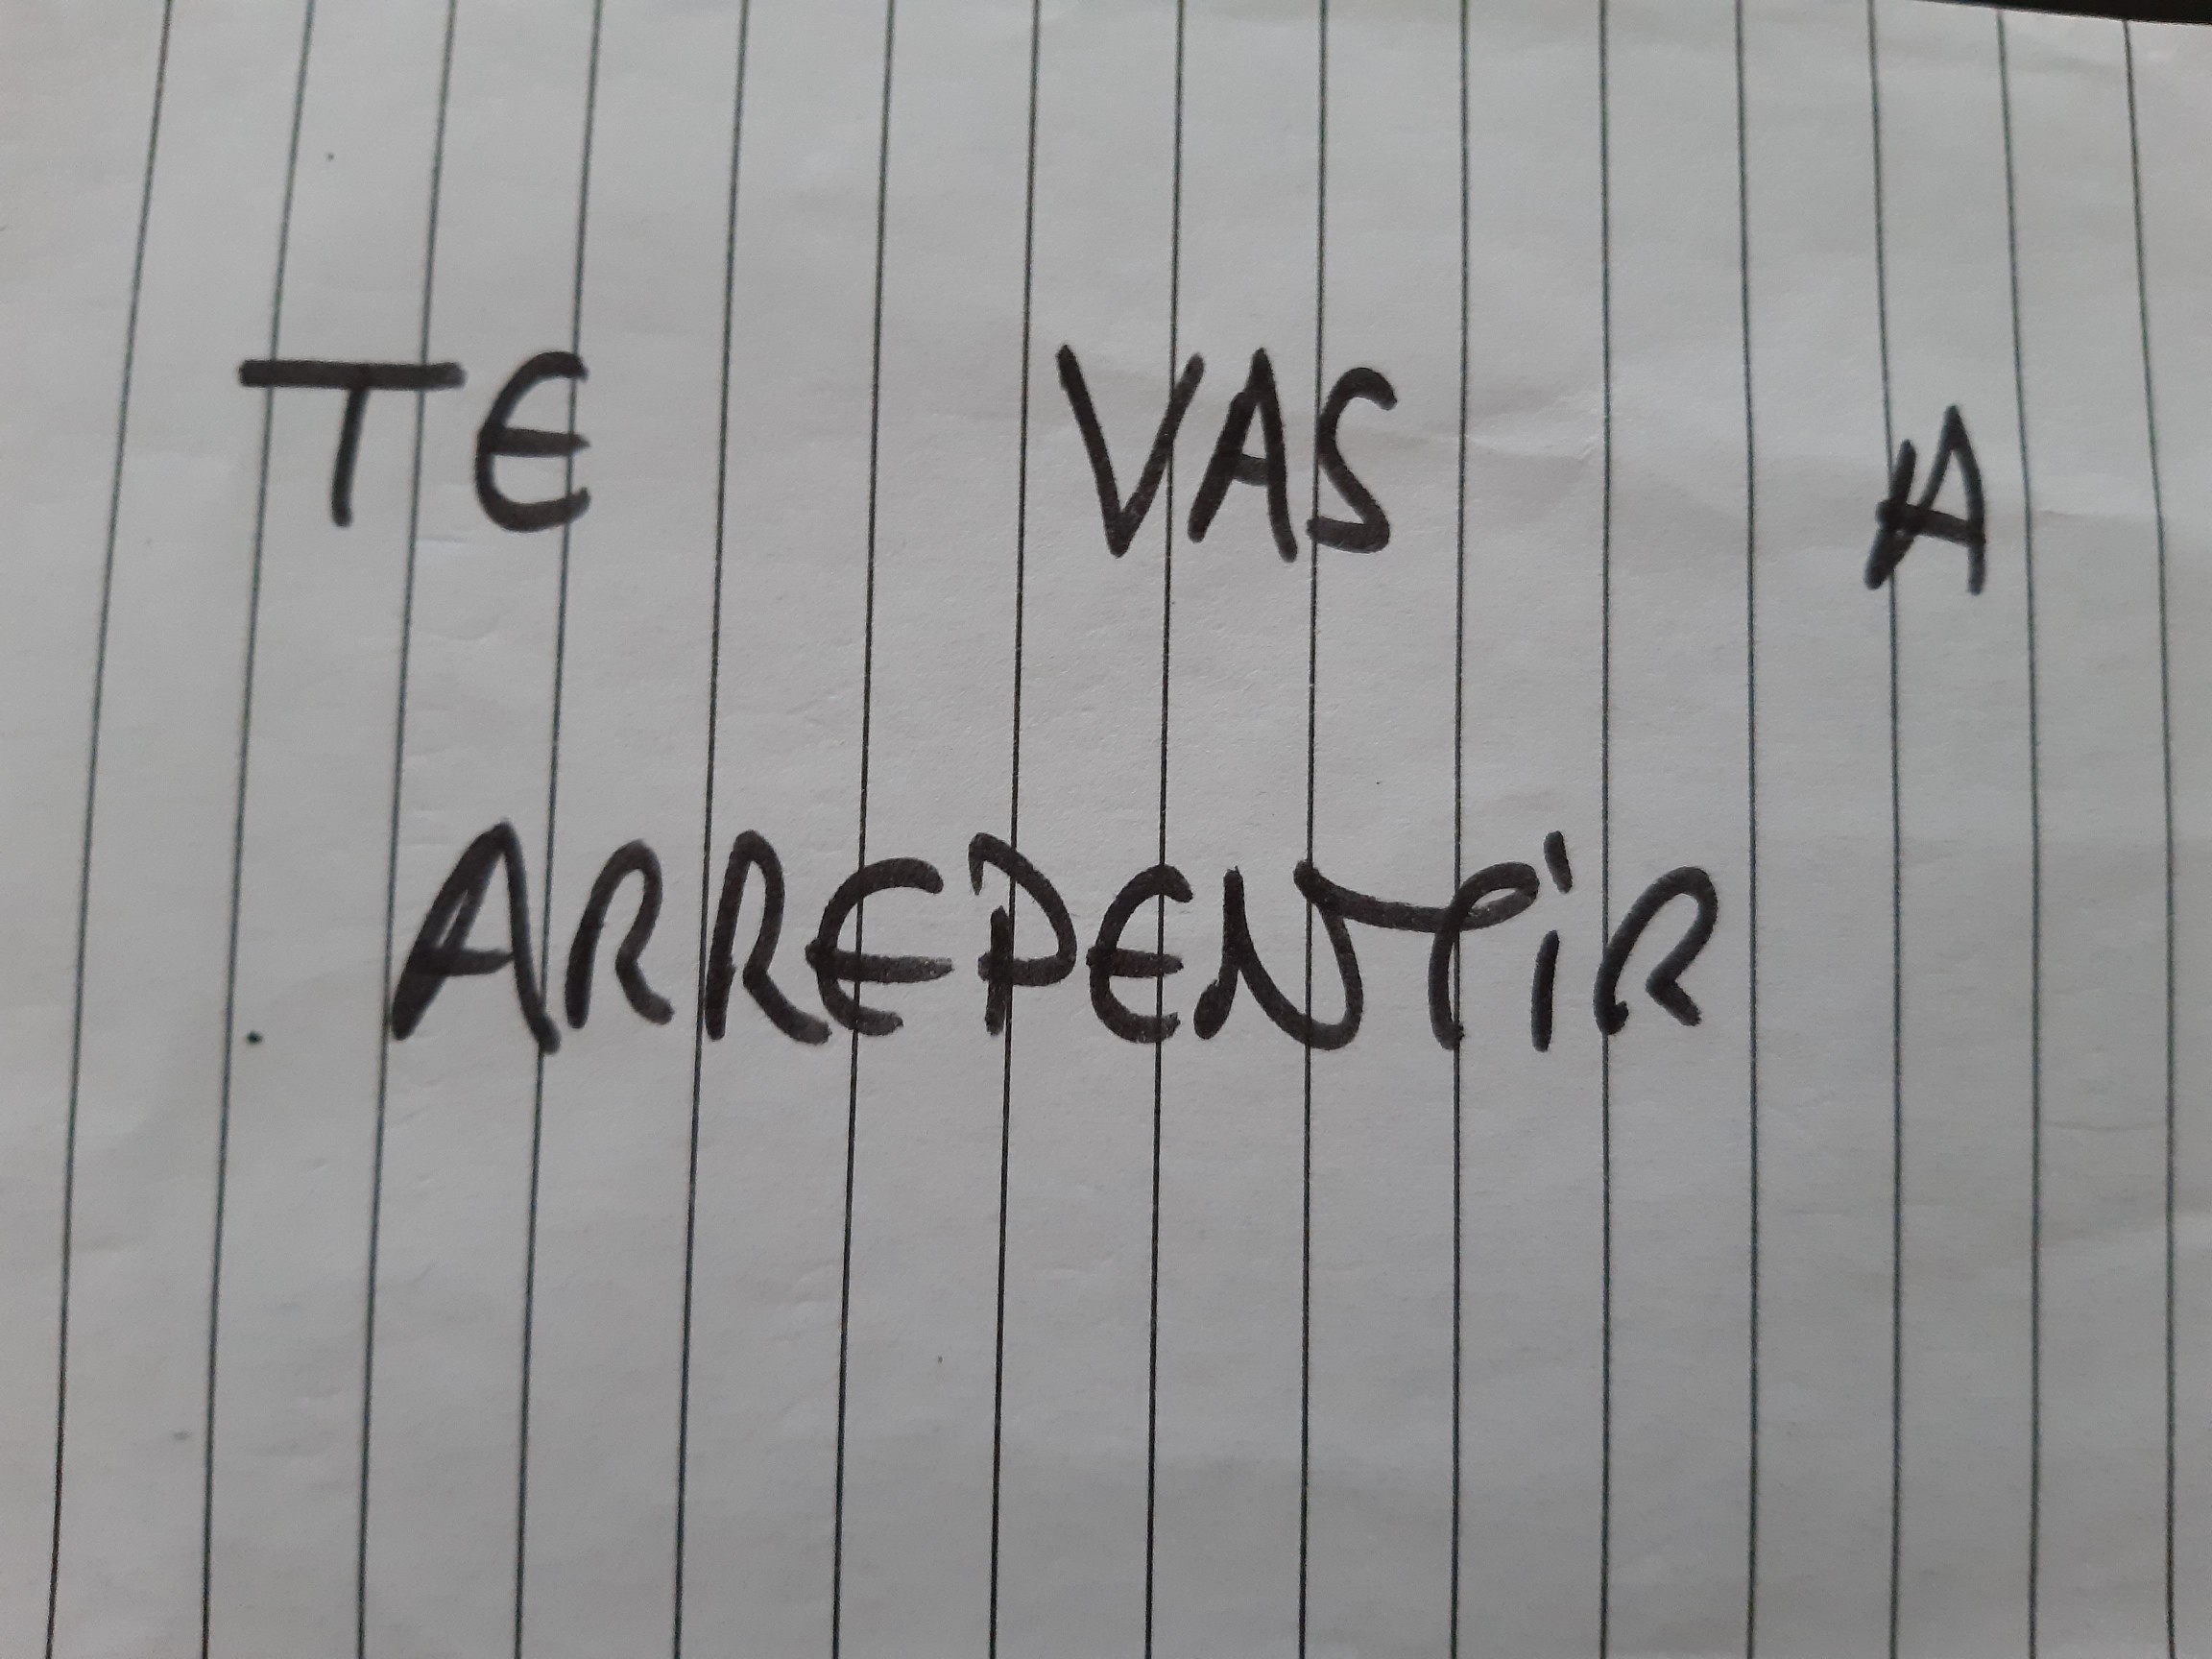 TE VAS A
ARREPENTIR